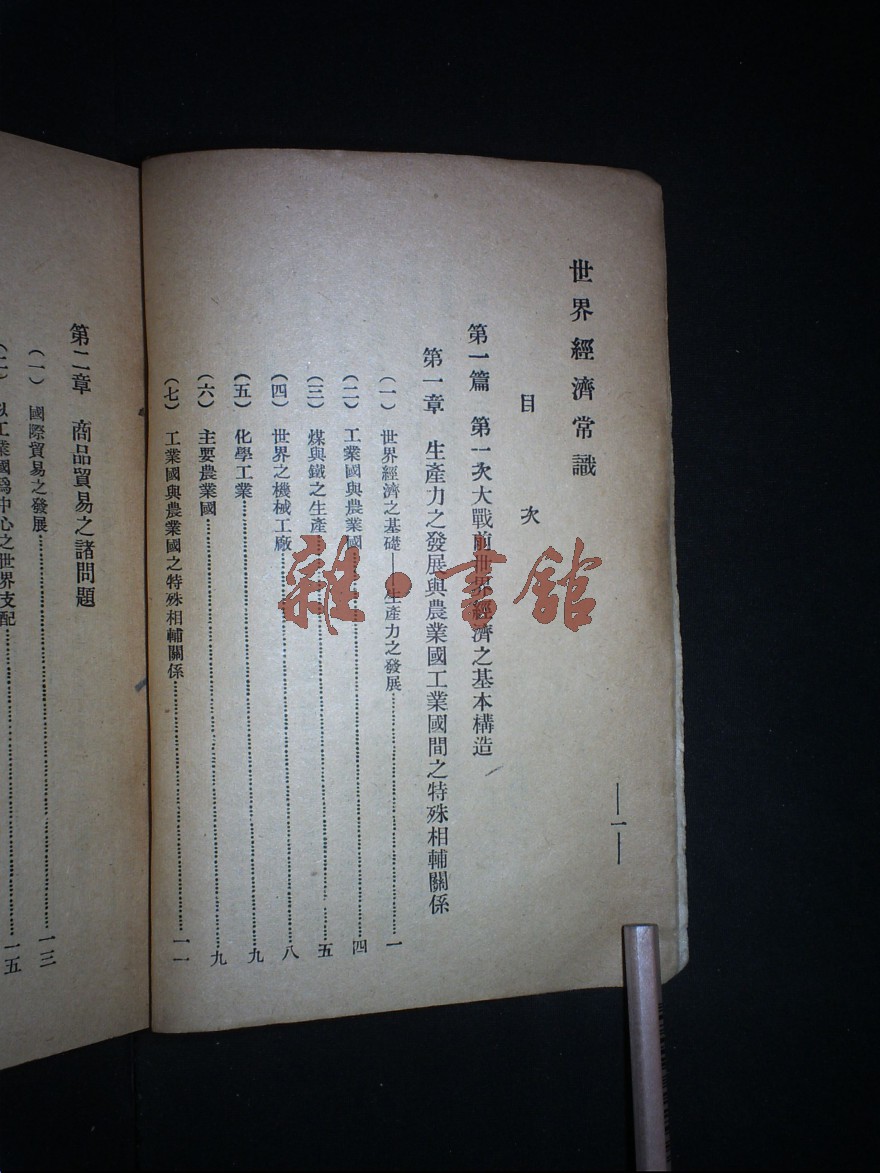 世界經濟常識
目 次
第一篇 第一次大戰前世界經濟之基本構造
第一章 生產力之發展與農業國工業國間之特殊相輔關係
(一) 世界經濟之基礎——生產力之發展……一
(二) 工業國與農業國……四
(三) 煤與鐵之生產……五
(四) 世界之機械工廠……八
(五) 化學工業……九
(六) 主要農業國……九
(七) 工業國與農業國之特殊相輔關係……一一
—一—
第二章 商品貿易之諸問題
(一) 國際貿易之發展……一三
(二) 以工業國爲中心之世界支配……一五
雜·書館